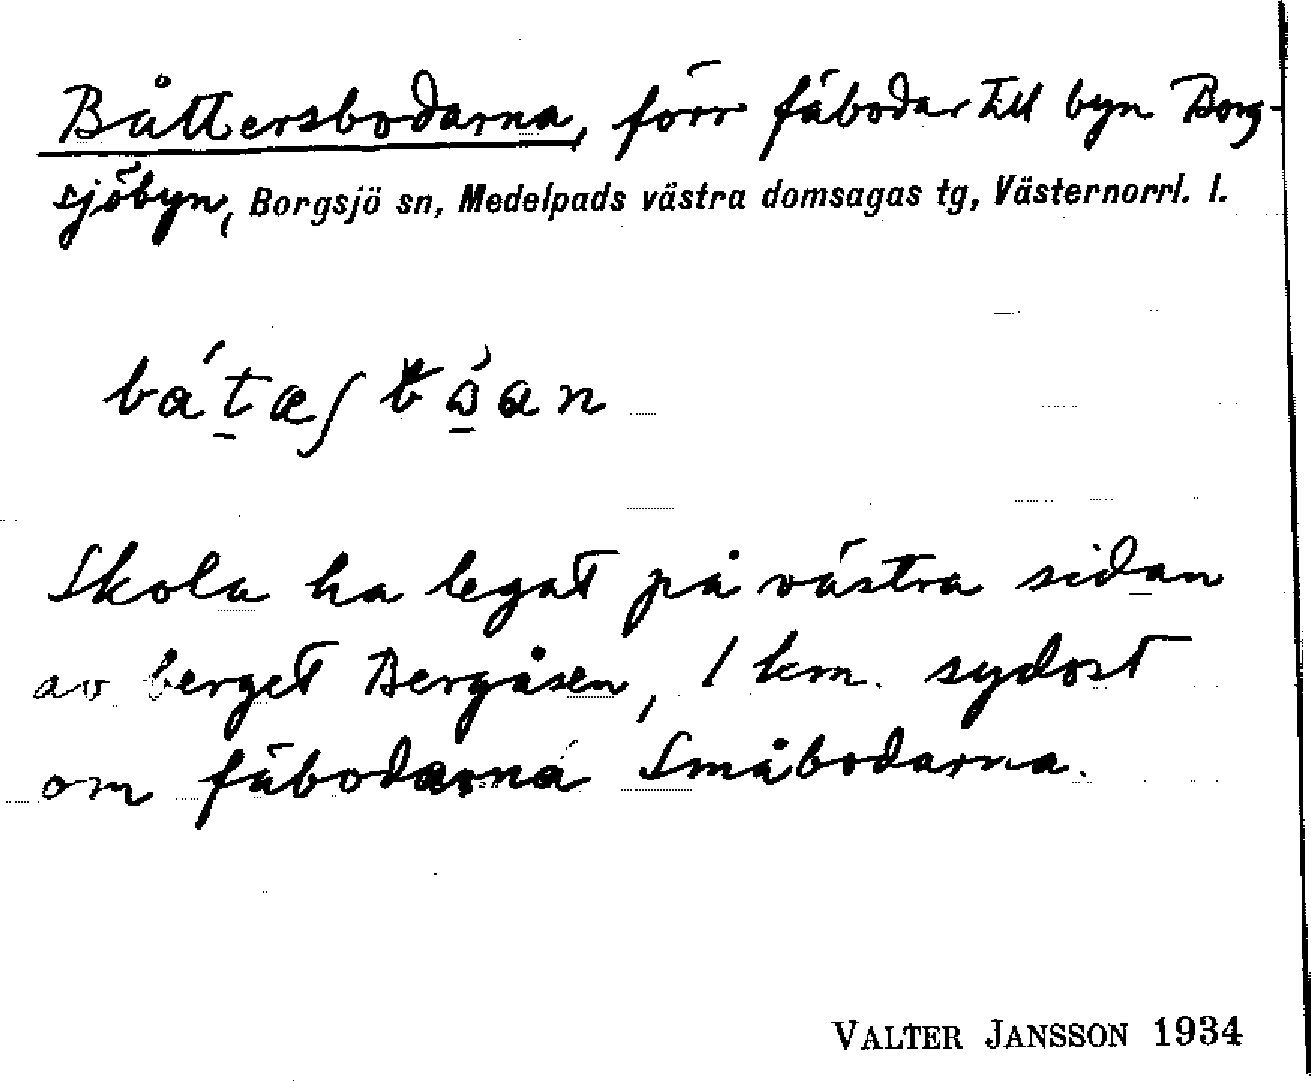 Båttersbodarna, förr fäbodar till byn Borg-
sjöbyn, Borgsjö sn, Medelpads västra domsagas tg, Västernorrl. l.
Skola ha legat på västra sidan
av berget Bergåsen, 1 km. sydost
om fäbodarna Småbodarna.
VALTER JANSSON 1934